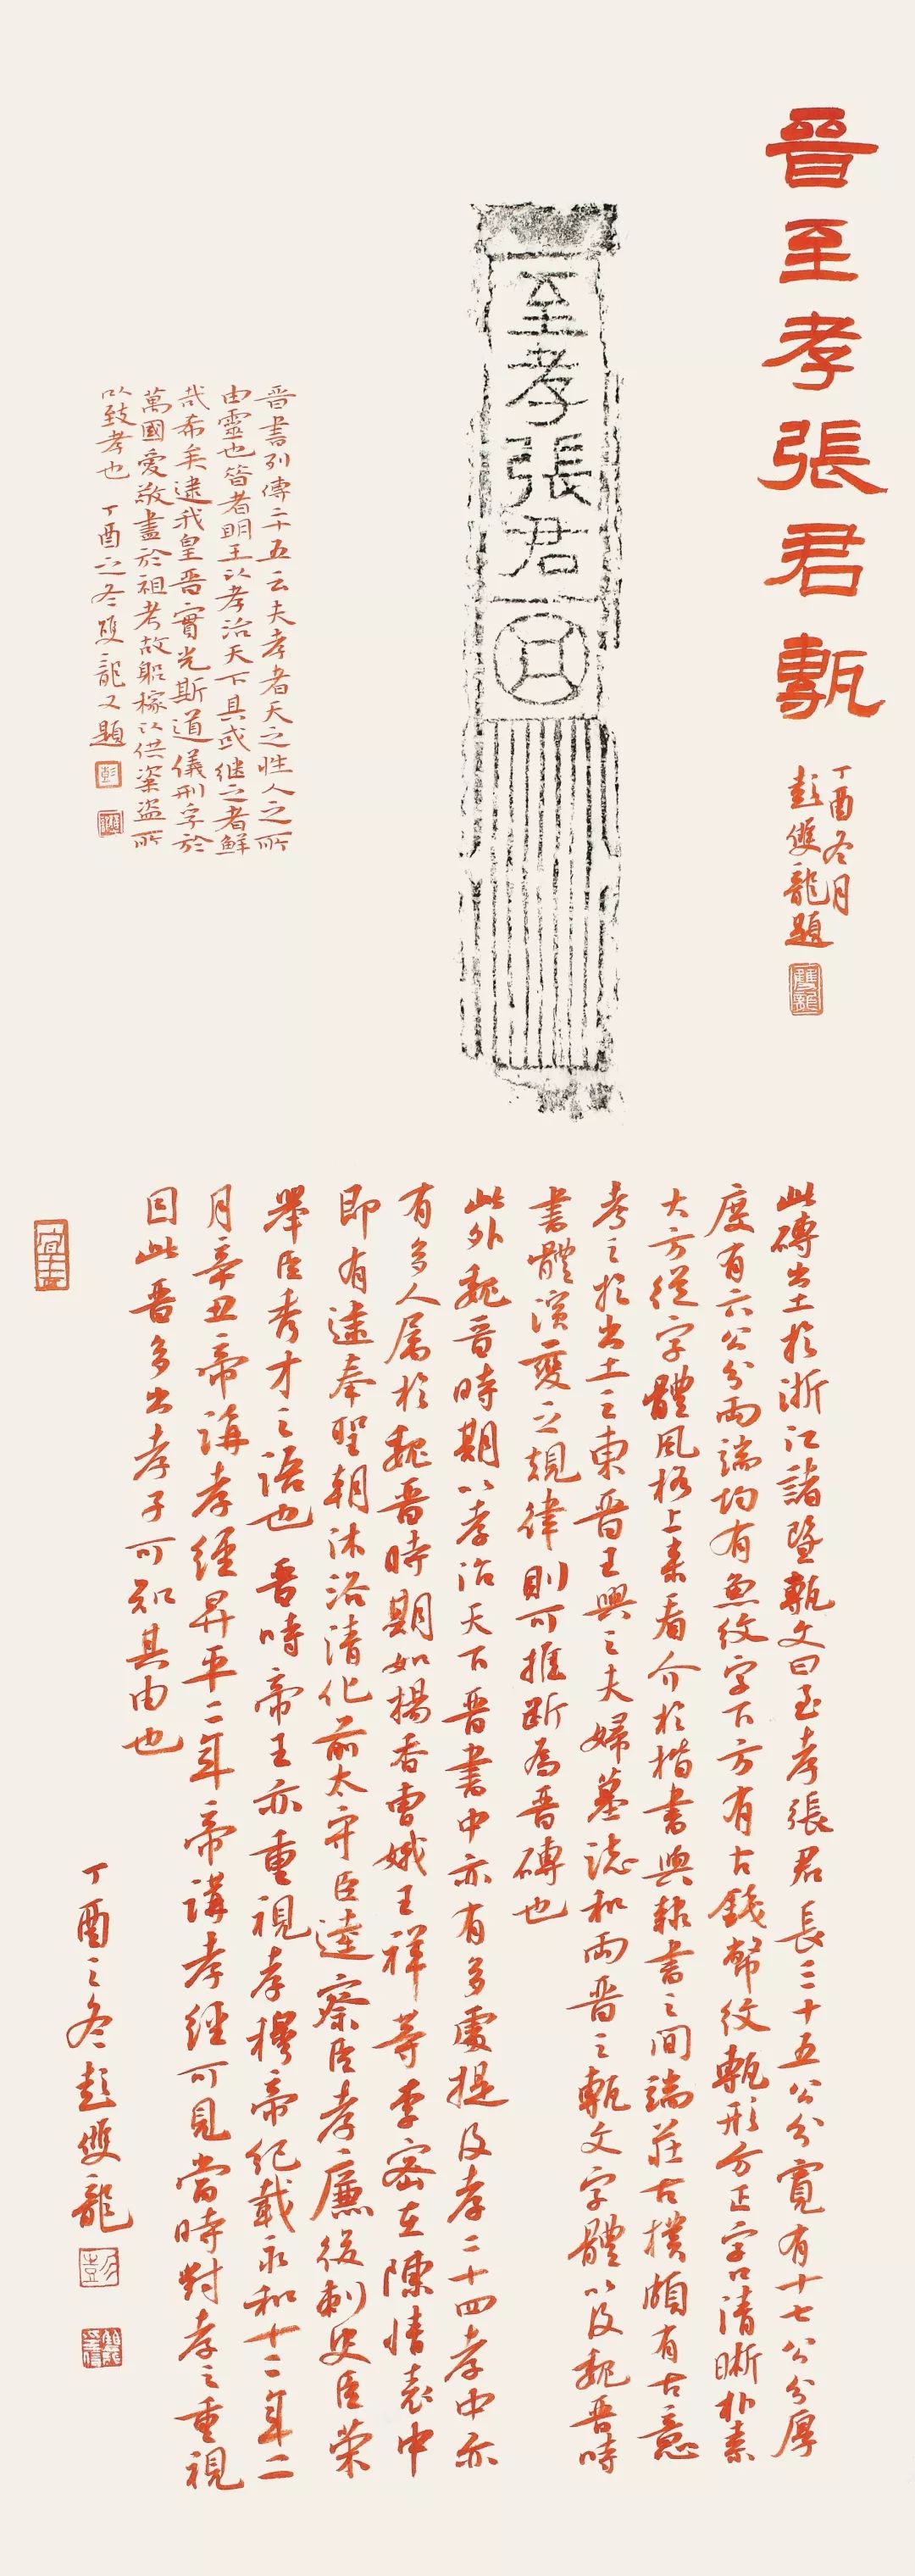 晉至孝張君甎
丁酉冬月
彭雙龍題
雙龍
至孝張君
晉書列傳二十五云夫孝者天之性人之所
由靈也昝者明王以孝治天下具或继之者鮮
哉希矣逮我皇晉實光斯道儀刑孚於
萬國愛敬盡於祖考故躬稼以供粢盛所
以致孝也 丁酉之冬雙龍又題
彭
此磚出土於浙江諸暨甎文曰至孝張君長三十五公分寬有十七公分厚
度有六公分兩端均有魚紋字下方有古錢幣紋甎形方正字口清晰朴素
大方從字體風格上来看介於楷書與隸書之間端莊古撲頗有古意
考之於出土之東晋王興之夫婦墓誌和兩晋之甎文字體以及魏晋時
書體演變之規律則可推斷為晋磚也
此外魏晋時期以孝治天下晋書中亦有多處提及孝二十四孝中亦
有多人属於魏晋時期如楊香曹娥王祥等李密在陳情表中
即有逮奉聖朝沐浴清化前太守臣逵察臣孝廉後刺史臣荣
舉臣秀才之語也 晋時帝王亦重視孝穆帝纪載永和十二年二
月辛丑帝講孝經昇平二年帝講孝經可見當時對孝之重視
因此晋多出孝子可知其由也
丁酉之冬彭雙龍
彭